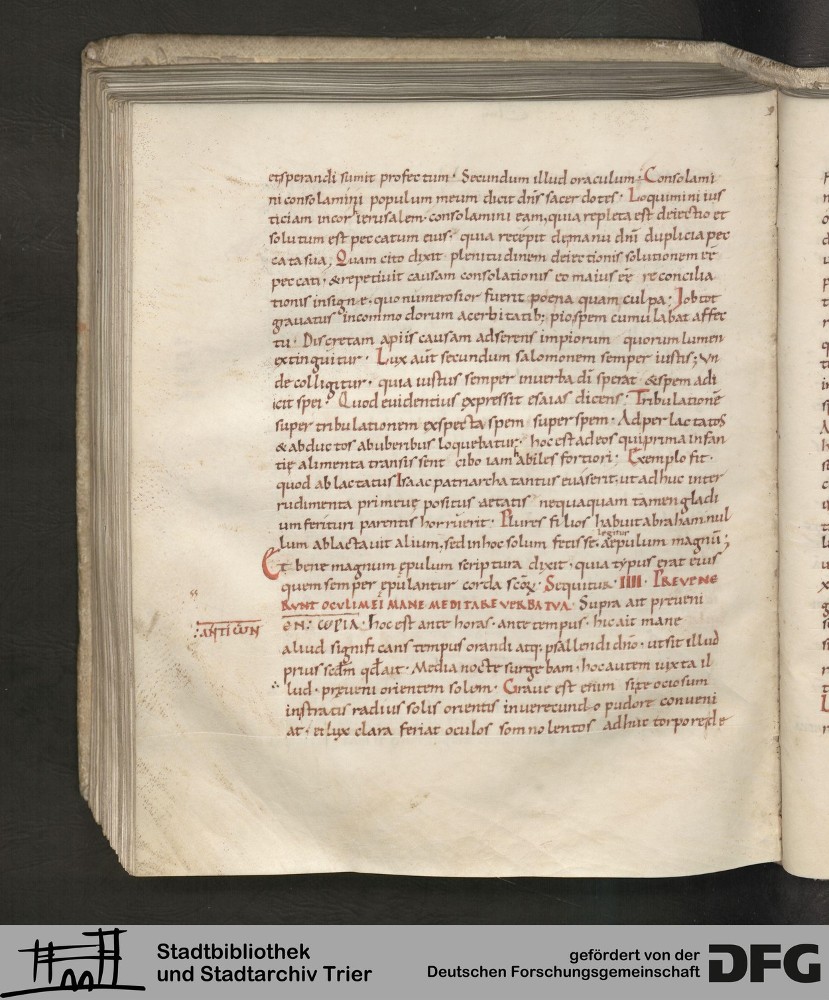 et sperandi sumit profectum· Secundum illud oraculum· Consolami
ni consolamini populum meum dicit dn̄s sacerdotes· Loquimini ius
ticiam in cor ierusalem· consolamini eam, quia repleta est deiectio et
solutum est peccatum eius· quia recepit de manu dn̄i duplicia pec
cata sua; Quam cito dixit plenitudinem deiectionis solutionem eē
peccati· & repetivit causam consolationis eo maius eē reconcilia
tionis insigne· quo numerosior fuerit poena quam culpa; Iob tot
gravatus incommodorum acerbitatib; pio spem cumulabat affec
tu· Discretam a piis causam adserens impiorum quorum lumen
extinguitur· Lux aut̄ secundum salomonem semper iustis; un
de colligitur· quia iustus semper in verba dī sperat & spem adi
icit spei· Quod evidentius expressit esaias dicens· Tribulationē
super tribulationem exspecta spem super spem· Ad perlactatos
& abductos ab uberibus loquebatur· hoc est ad eos qui prima infan
tię alimenta transissent cibo iam habiles fortiori; Exemplo fit·
quod ablactatus Isaac patriarcha tantus evaserit, ut adhuc inter
rudimenta primevę positus aetatis nequaquam tamen gladi
um ferituri parentis horruerit· Plures filios habuit abraham nul
lum ablactavit alium, sed in hoc solum fecisse legitur aepulum magnū;
Et bene magnum epulum scriptura dixit· quia typus erat eius
quem semper epulantur corda scōꝝ· Sequitur· IIII· PREVENE
RUNT OCULI MEI MANE MEDITARE VERBA TUA· Supra ait preveni
:ΑΝΤΙ ΩΩΝ
hoc est ante horas· ante tempus· hic ait mane
aliud significans tempus orandi atq; psallendi dn̄o· ut sit illud
prius scdm̄ qd̄ ait· Media nocte surgebam· hoc autem iuxta il
lud· preveni orientem solem· Grave est enim si te ociosum
in stratis radius solis orientis inverecundo pudore conveni
at· et lux clara feriat oculos somnolentos adhuc torpore de
Stadtbibliothek
und Stadtarchiv Trier
gefördert von der
Deutschen Forschungsgemeinschaft
DFG